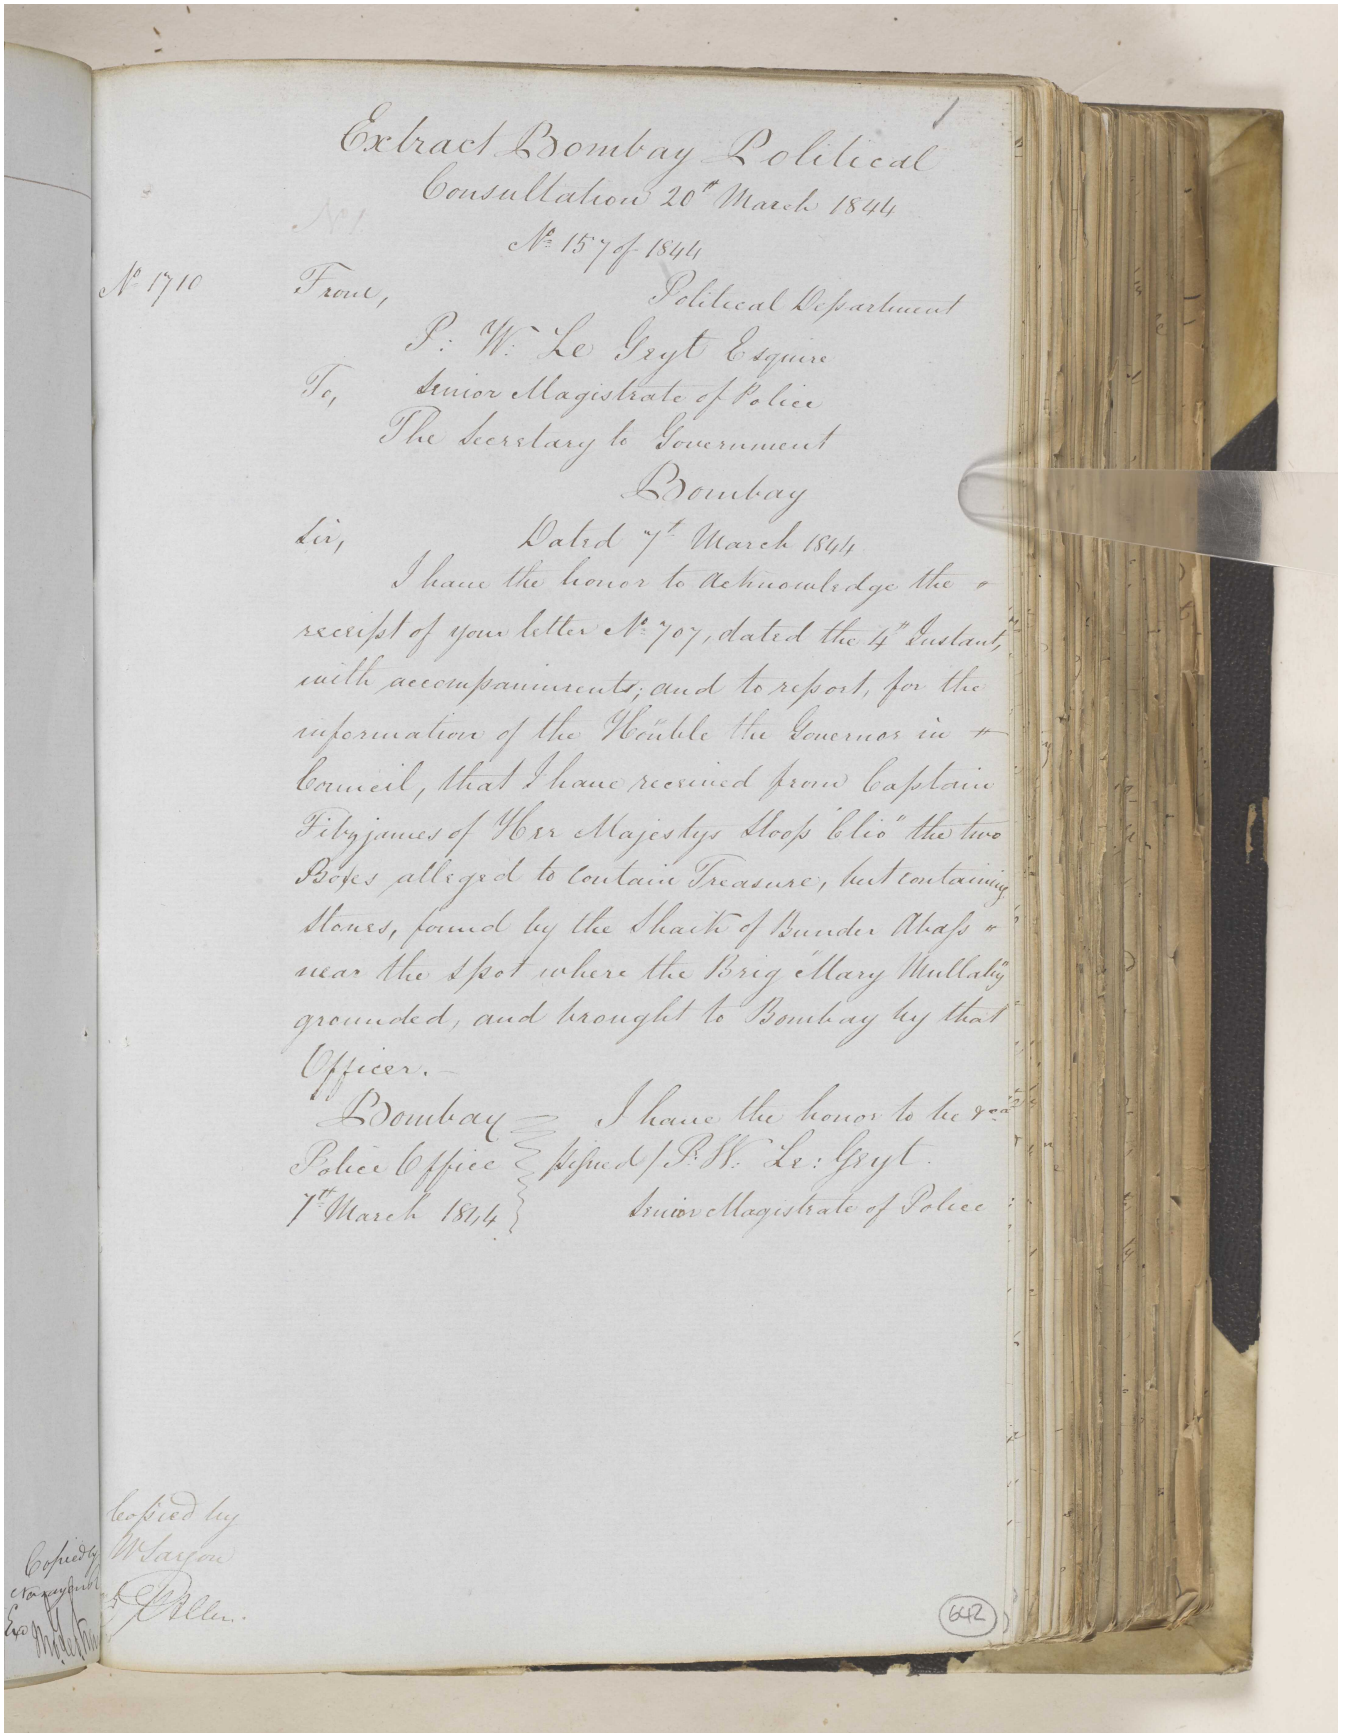 1
Extract Bombay Political
Consultation 20th March 1844
No 1
No 157 of 1844
No 1710
From,
Political Department
P: W: Le Geyt Esquire
To,
Senior Magistrate of Police
The Secretary to Government
Bombay
Sir,
Dated 7th March 1844
I have the honor to acknowledge the "
receipt of your letter No 707, dated the 4th Instant,
with accompaniments; and to report, for the
information of the Honble the Governor in "
Council, that I have received from Captain
Fitzjames of Her Majestys Sloop "Clio" the two
Boxes alleged to contain Treasure, but containing
Stones, found by the Shaik of Bunder Abass "
near the spot where the Brig "Mary Mullaby"
grounded, and brought to Bombay by that
Officer. –
Bombay
I have the honor to be &ca
Police Office
signed / P: W: Le: Geyt.
7th March 1844
Senior Magistrate of Police
Copied by
Copied by
Ex
642